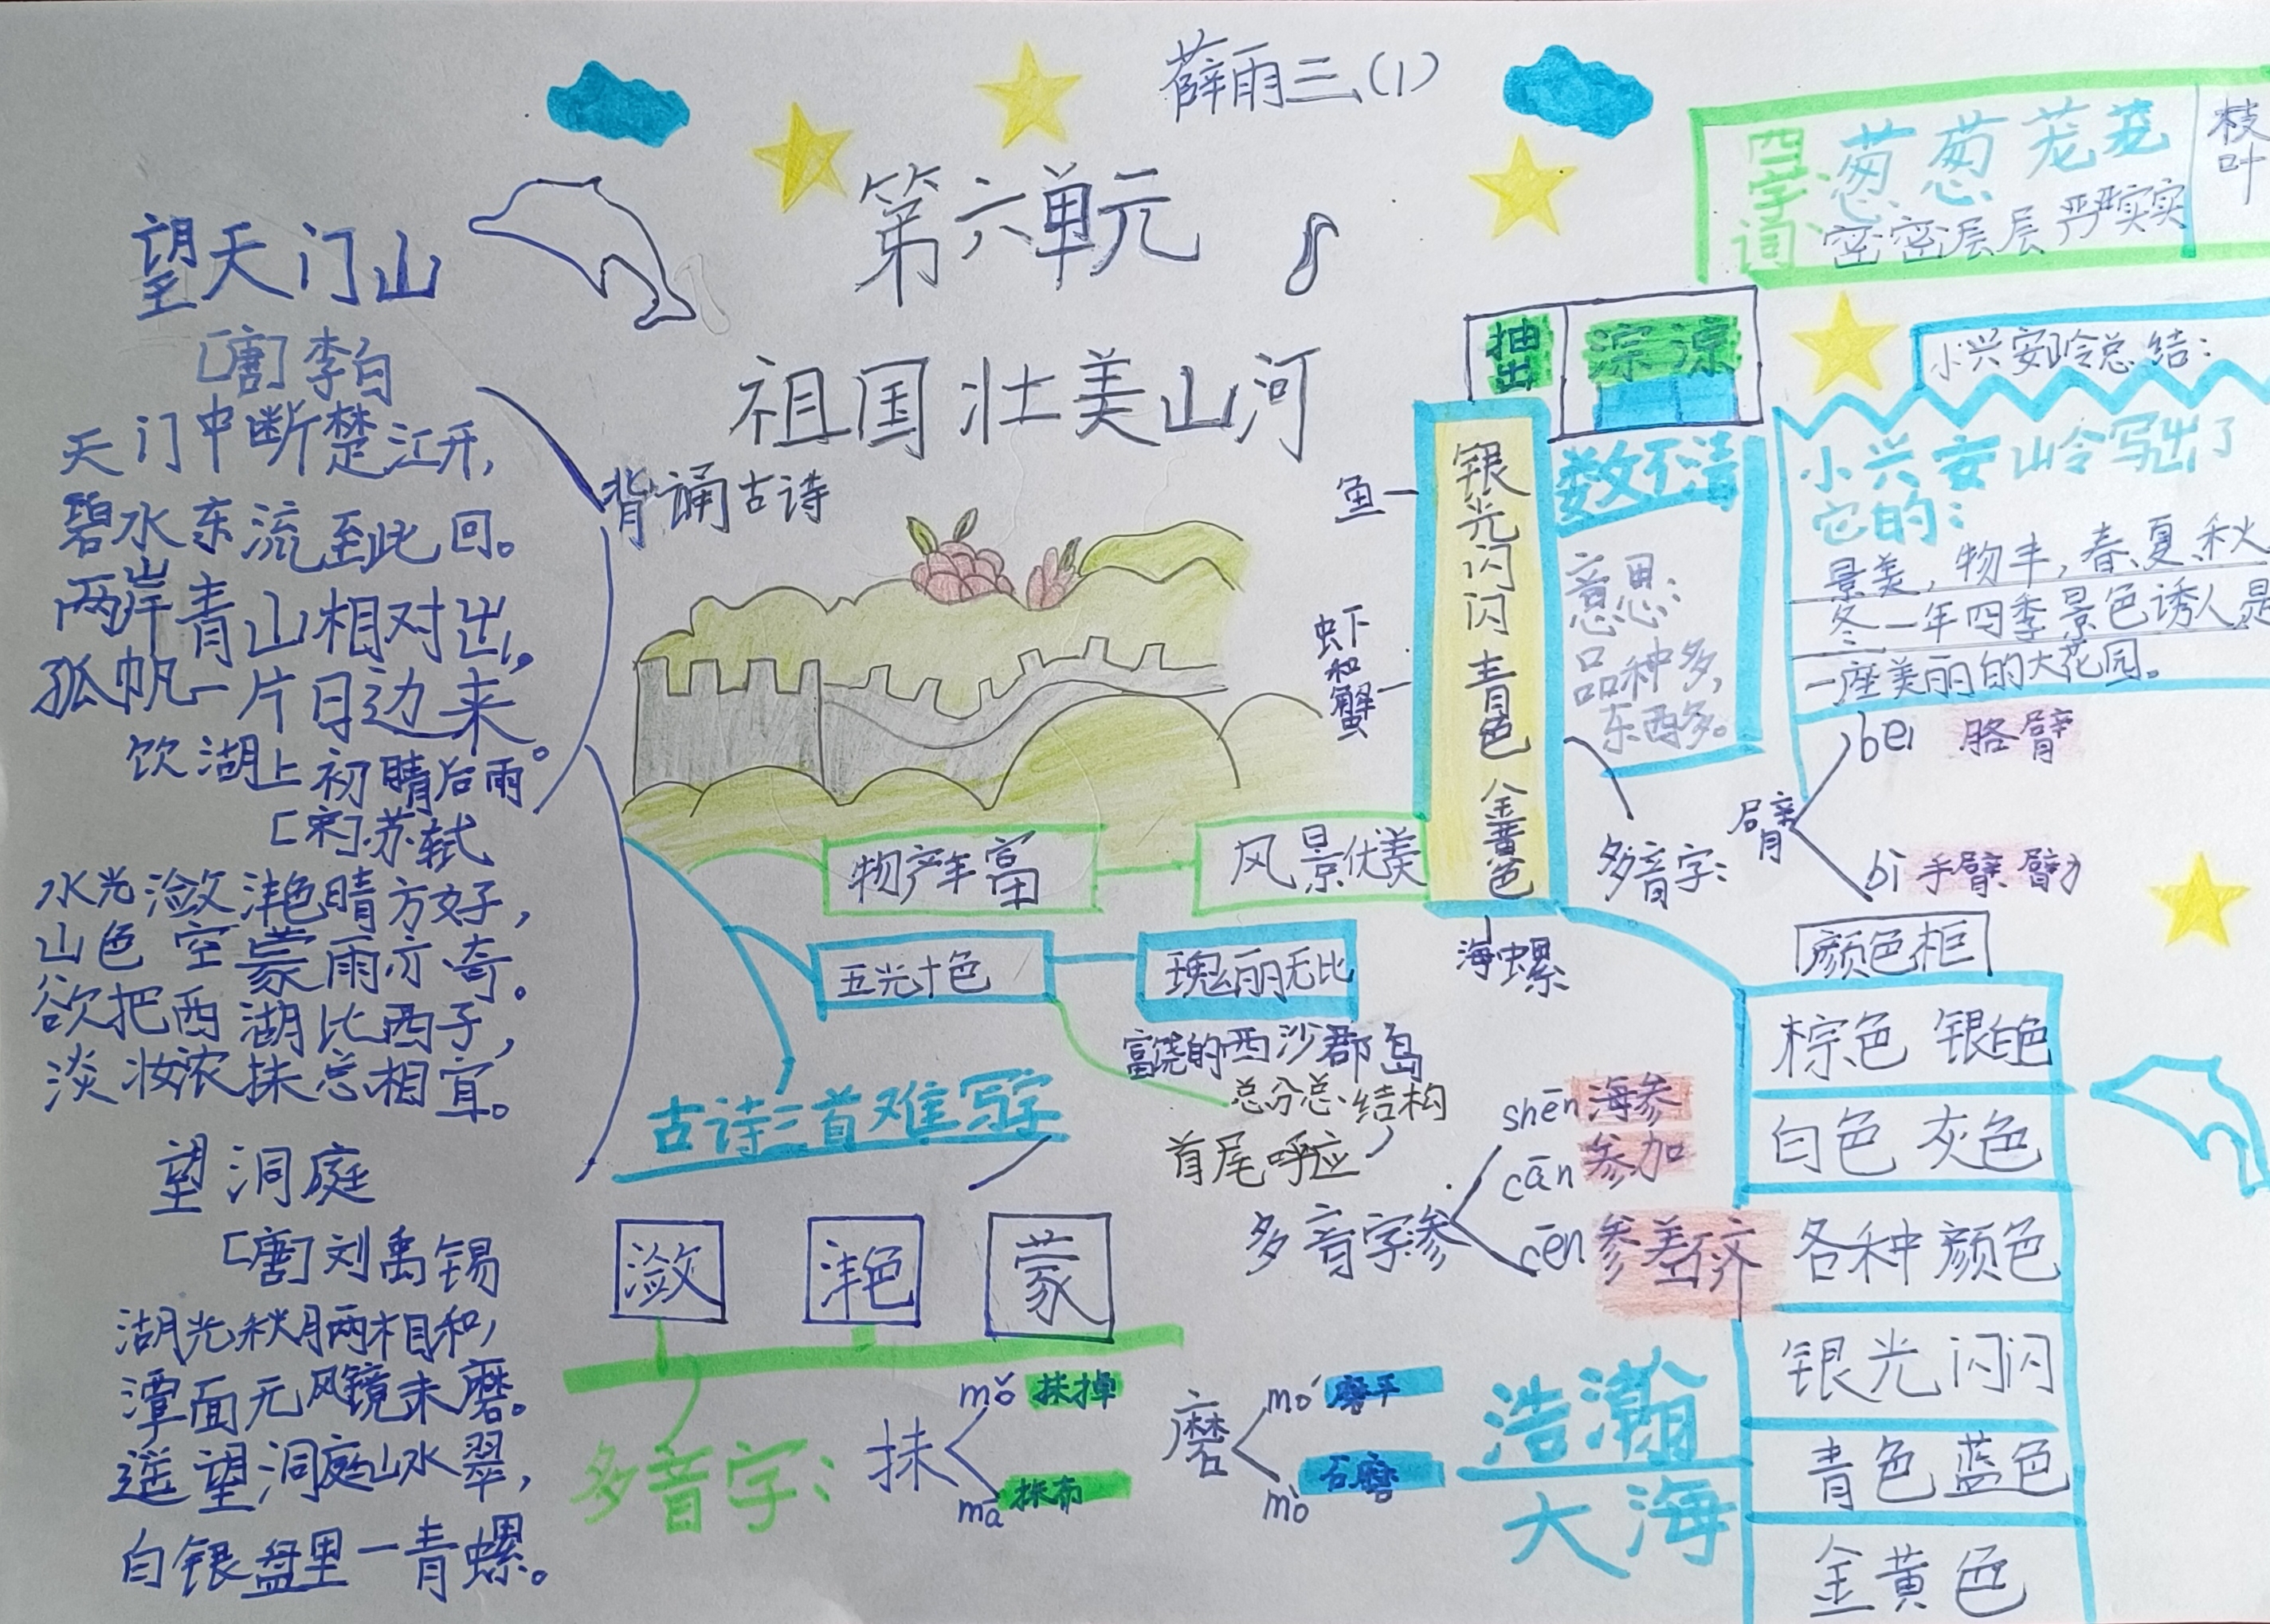 薛雨三(1)
第六单元
祖国壮美山河
望天门山
[唐]李白
天门中断楚江开,
碧水东流至此回。
两岸青山相对出,
孤帆一片日边来。
饮湖上初晴后雨
[宋]苏轼
水光潋滟晴方好,
山色空蒙雨亦奇。
欲把西湖比西子,
淡妆浓抹总相宜。
望洞庭
[唐]刘禹锡
湖光秋月两相和,
潭面无风镜未磨。
遥望洞庭山水翠,
白银盘里一青螺。
背诵古诗
物产丰富
风景优美
五光十色
瑰丽无比
富饶的西沙群岛
总分总结构
首尾呼应
古诗三首难写字
潋
滟
蒙
多音字:
抹
mǒ 抹掉
mā 抹布
磨
mó 磨平
mò 石磨
多音字参
shēn 海参
cān 参加
cēn 参差不齐
浩瀚
大海
鱼
虾和蟹
海螺
银光闪闪 青色 金黄色
抽出
淙 凉
数不清
意思:
品种多,
东西多。
多音字:
臂
bei 胳臂
bì 手臂 臂力
四字词:
葱葱茏茏
密密层层 严严实实
枝叶
小兴安岭总结:
小兴安岭写出了
它的:
景美,物丰,春、夏、秋
冬一年四季景色诱人是
一座美丽的大花园。
颜色柜
棕色 银白色
白色 灰色
各种颜色
银光闪闪
青色 蓝色
金黄色